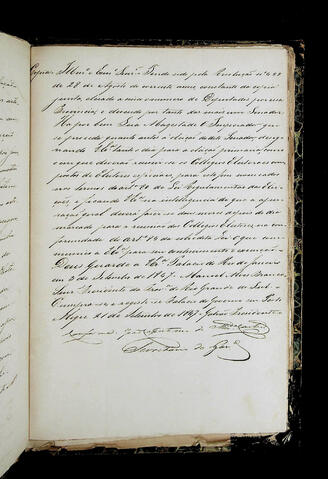 Copia = Illmo. e Exmo. Senr. = Tendo sido pela Resolução nº
de 28 de Agosto do corrente anno constante da copia
junta, elevado a mais o numero de Deputados por essa
Provincia, e devendo por tanto dar mais um Senador
Ha por bem Sua Magestade o Imperador que
se proceda quanto antes á eleição deste Senador, desig-
nando V. Exa. tanto o dia para a eleição primaria, como
em que devera reunir-se os Collegios Eleitoraes com-
postos de Eleitores especiaes, para este fim nomeados
nos termos do artº 80 da Lei Regulamentar das Elei-
ções, e ficando V. Exa. na intelligencia de que a apu-
ração geral devera fazer-se dous mezes depois do dia
marcado para a reunião dos Collegios Eleitoraes, na con-
formidade do artº da citada Lei. O que com-
munico a V. Exa. para seu conhecimento e execução.
Deos Guarde a V. Exa. Palacio do Rio de Janeiro
em 2 de Setembro de 1847. = Manoel Alves Branco =
Senr. Presidente da Provª do Rio Grande do Sul. =
Cumpra-se e registe-se. Palacio do Governo em Porto
Alegre 21 de Setembro de 1847. = Galvão Presidente =
Conforme
Secretario do Govº